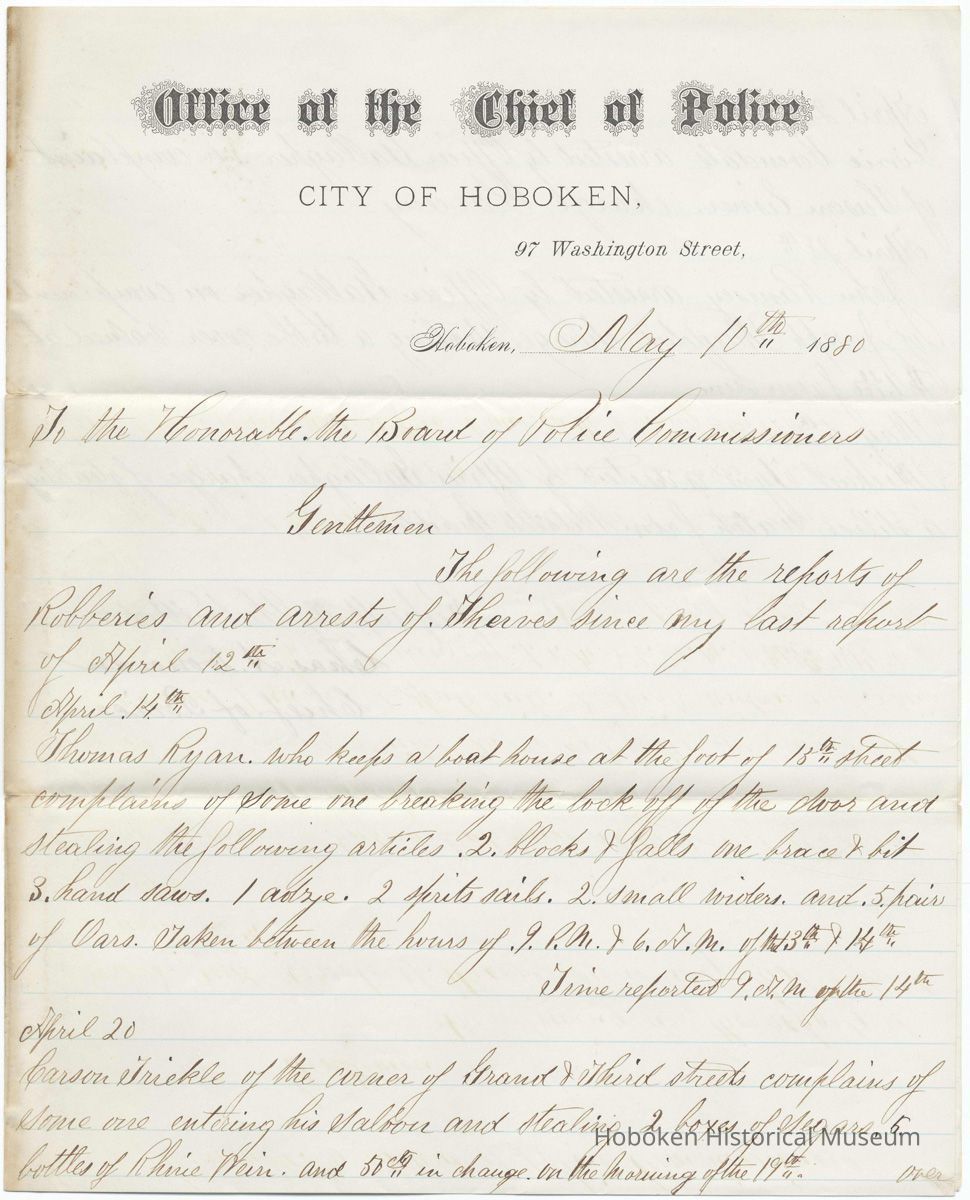 Office of the Chief of Police
CITY OF HOBOKEN,
97 Washington Street,
Hoboken, May 10th 1880
To the Honorable the Board of Police Commissioners
Gentlemen
The following are the reports of
Robberies and arrests of Theives since my last report
of April 12th
April 14th
Thomas Ryan. who keeps a boat house at the foot of 15th street
complains of some one breaking the lock off of the door and
stealing the following articles. 2. blocks & falls one brace & bit
3. hand saws. 1 adze. 2 sprits sails. 2. small and. 5. pair
of Oars. Taken between the hours of. 9. P.M. & 6. A.M. of the 13th & 14th
Time reported 9. A.M of the 14th
April 20
Carson Trickle of the corner of Grand & Third streets complains of
some one entering his saloon and stealing 2 boxes of segars 5
bottles of Rhine Wein. and 50 cts in change. on the morning of the 19th.
over
Hoboken Historical Museum